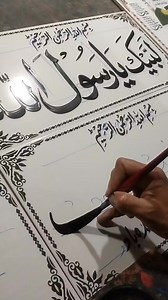 بسم الله الرحمن الرحيم
لبيك يا رسول الله
بسم الله الرحمن الرحيم